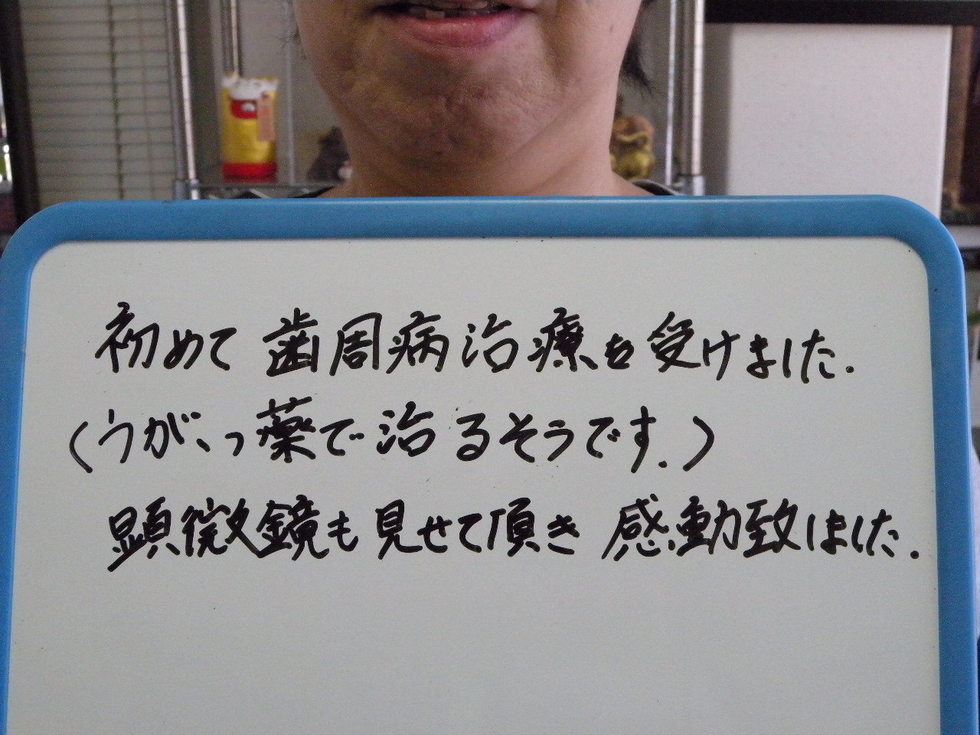 初めて歯周病治療を受けました.
(うがい薬で治るそうです.)
顕微鏡も見せて頂き感動致しました.